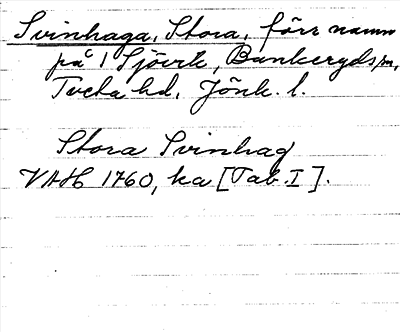 Svinhaga, Stora, förr namn
på 1 Sjövik, Bankeryds sn,
Tveta hd, Jönk. l.
Stora Svinhag
VAH 1760, ka [Tab. I].